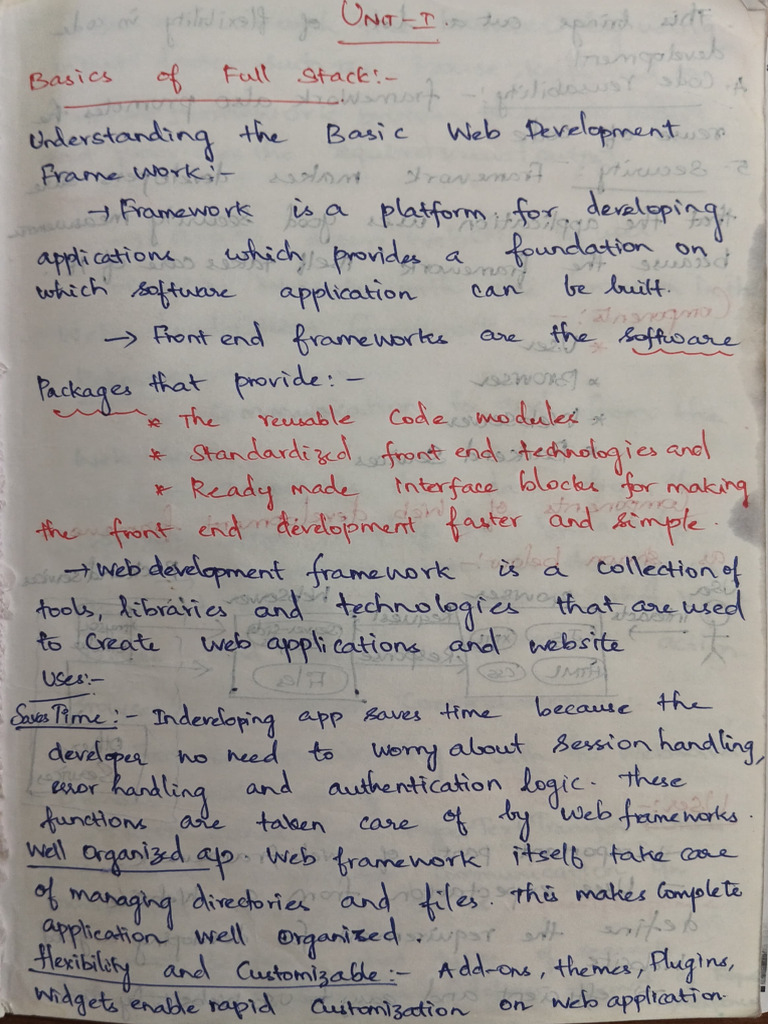 UNIT-I.
Basics of Full Stack:-
Understanding the Basic Web Development
Frame work:-
→ Framework is a platform for developing
applications which provides a foundation on
which software application can be built.
→ Front end frameworks are the software
Packages that provide:-
* The reusable code modules
* Standardized front end technologies and
* Ready made interface blocks for making
the front end development faster and simple.
→ Web development framework is a collection of
tools, libraries and technologies that are used
to create web applications and website
Uses:-
Saves Time:- In developing app saves time because the
developer no need to worry about session handling,
error handling and authentication logic. These
functions are taken care of by web frameworks.
Well Organized ap. Web framework itself take care
of managing directories and files. This makes Complete
application well organized.
flexibility and Customizable:- Add-ons, themes, Plugins,
widgets enable rapid customization on web application.